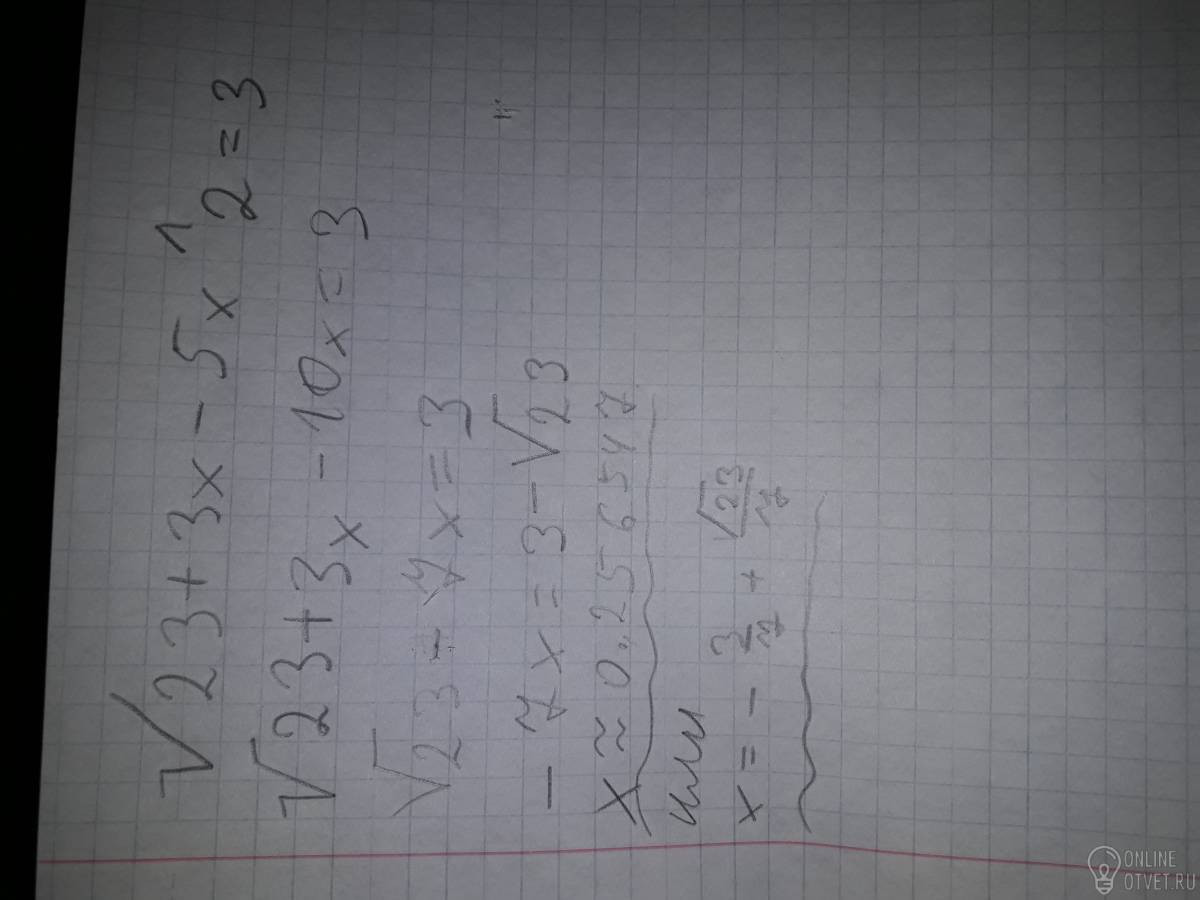 √23+3x-5x^2=3
√23+3x-10x=3
√23-7x=3
-7x=3-√23
x≈0.256547
или
x=-3/7+√23/7
ONLINE
OTVET.RU